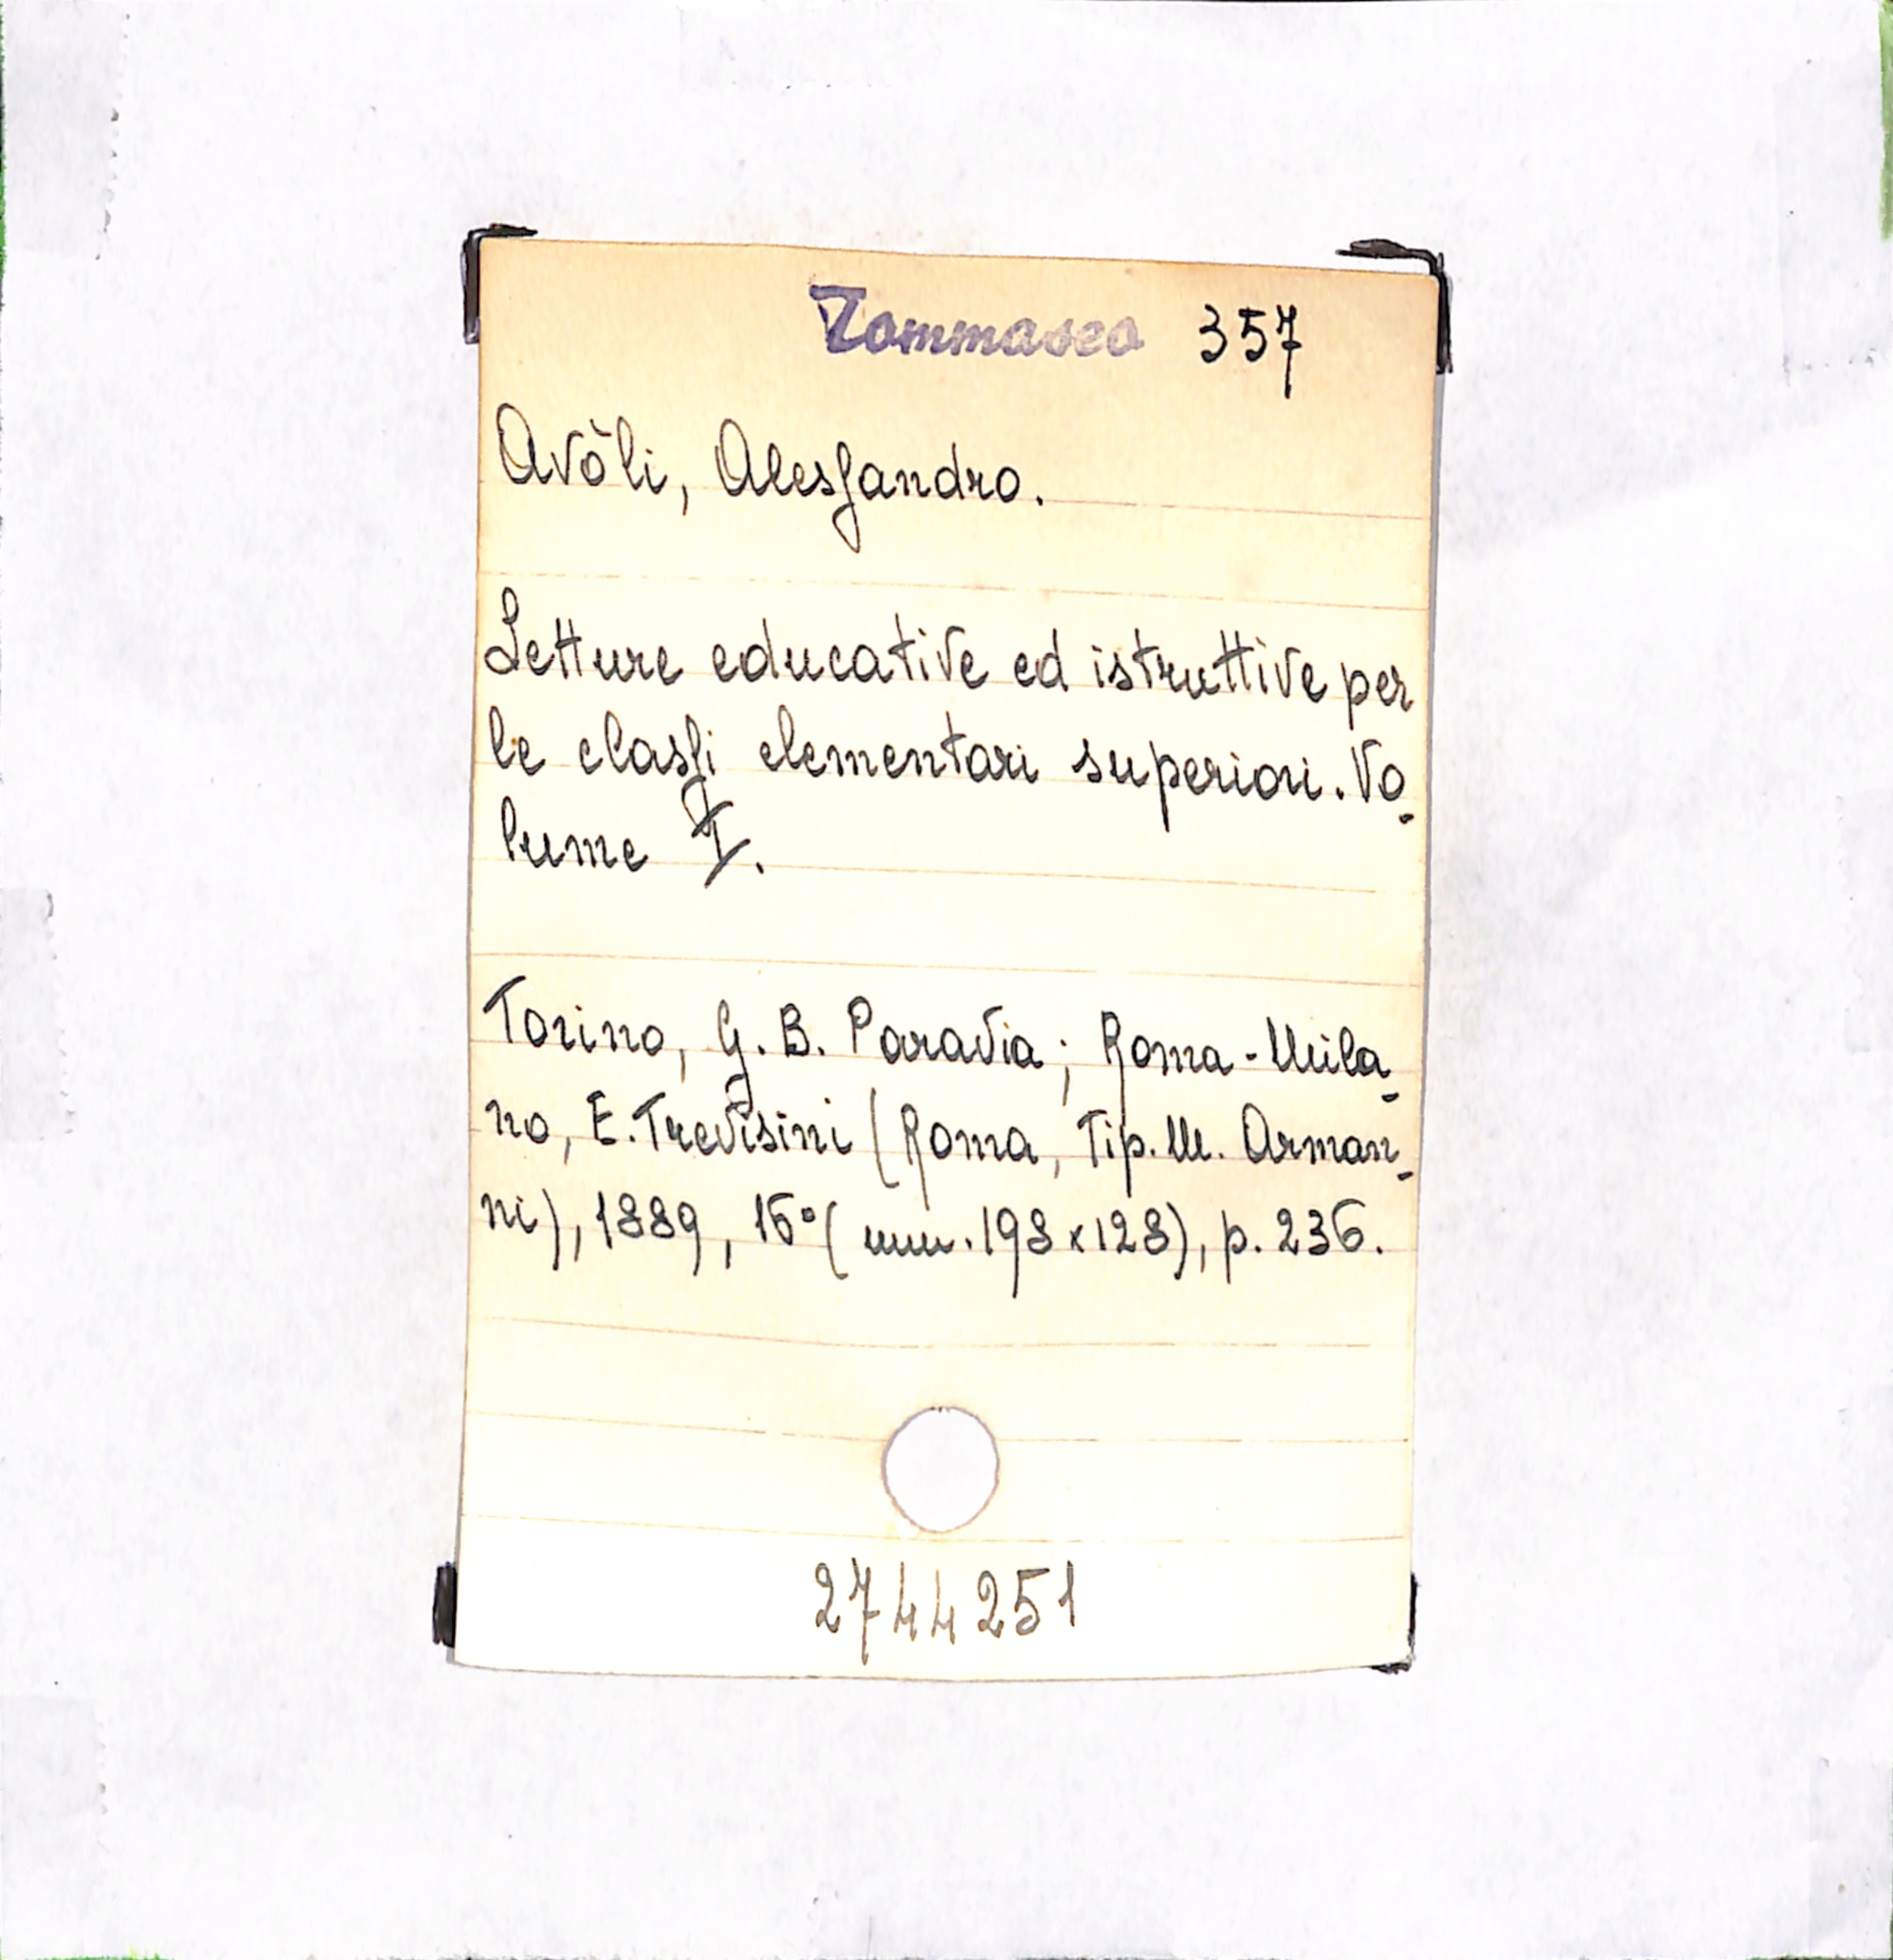 Tommaseo 357
Avòli, Alessandro.
Letture educative ed istruttive per
le classi elementari superiori. Vo-
lume I.
Torino, G. B. Paravia; Roma-Mila-
no, E. Trevisini (Roma, Tip. M. Arman-
ni), 1889, 16° (mm. 198x128), p. 236.
2744251